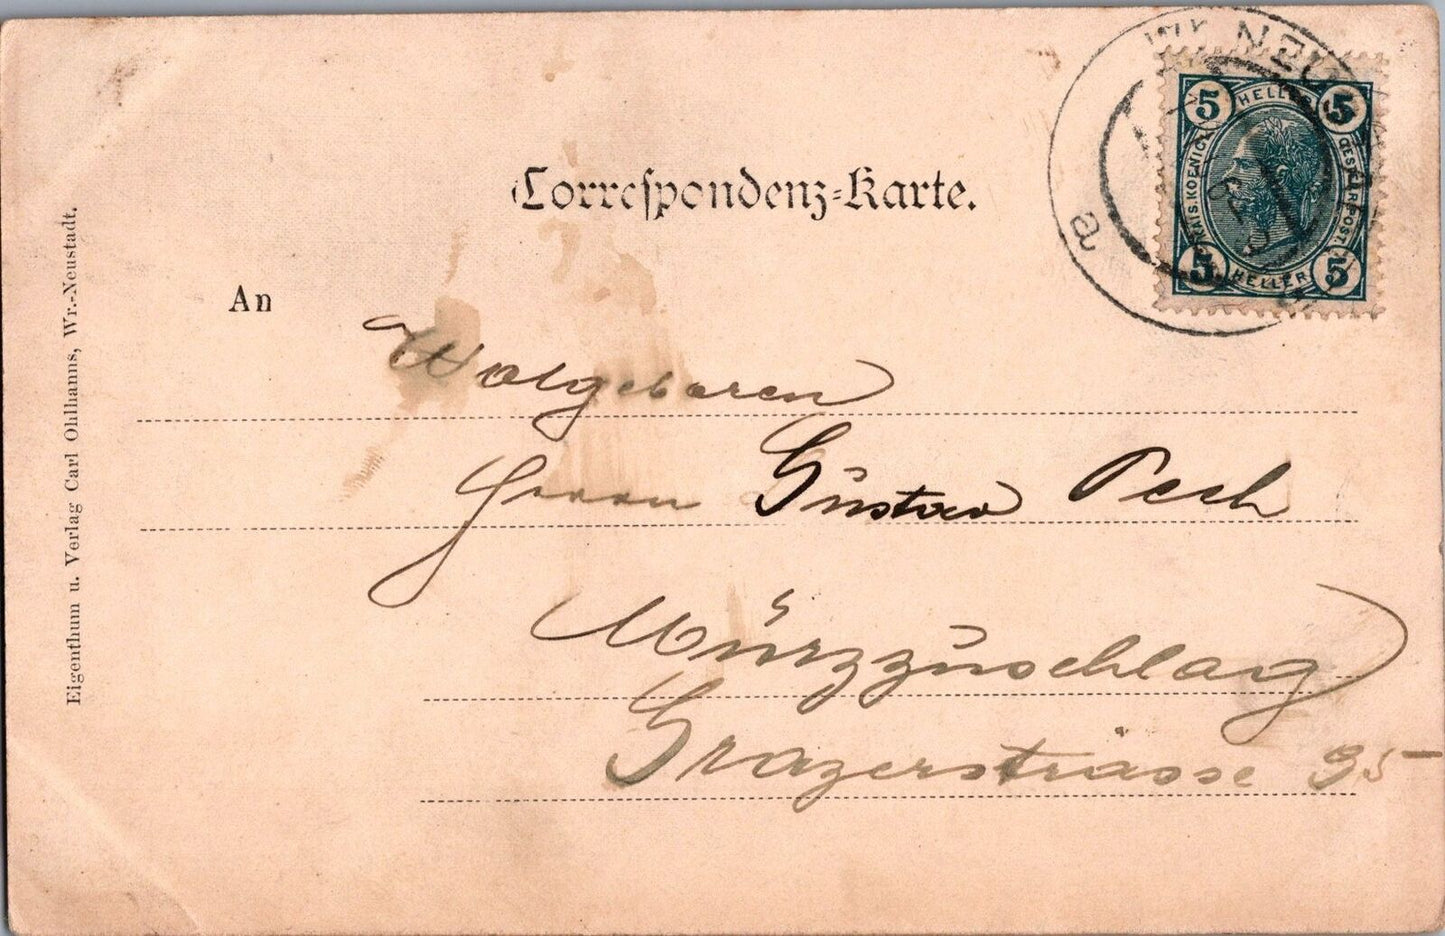 WR. NEU
a
5 HELLER 5
KAIS. KOENIGL. OESTERR. POST.
5 HELLER 5
Correspondenz-Karte.
An
Wolgeboren
Herrn Gustav Pech
Mürzzuschlag
Grazerstrasse 95
Eigenthum u. Verlag Carl Ohlhanns, Wr.-Neustadt.